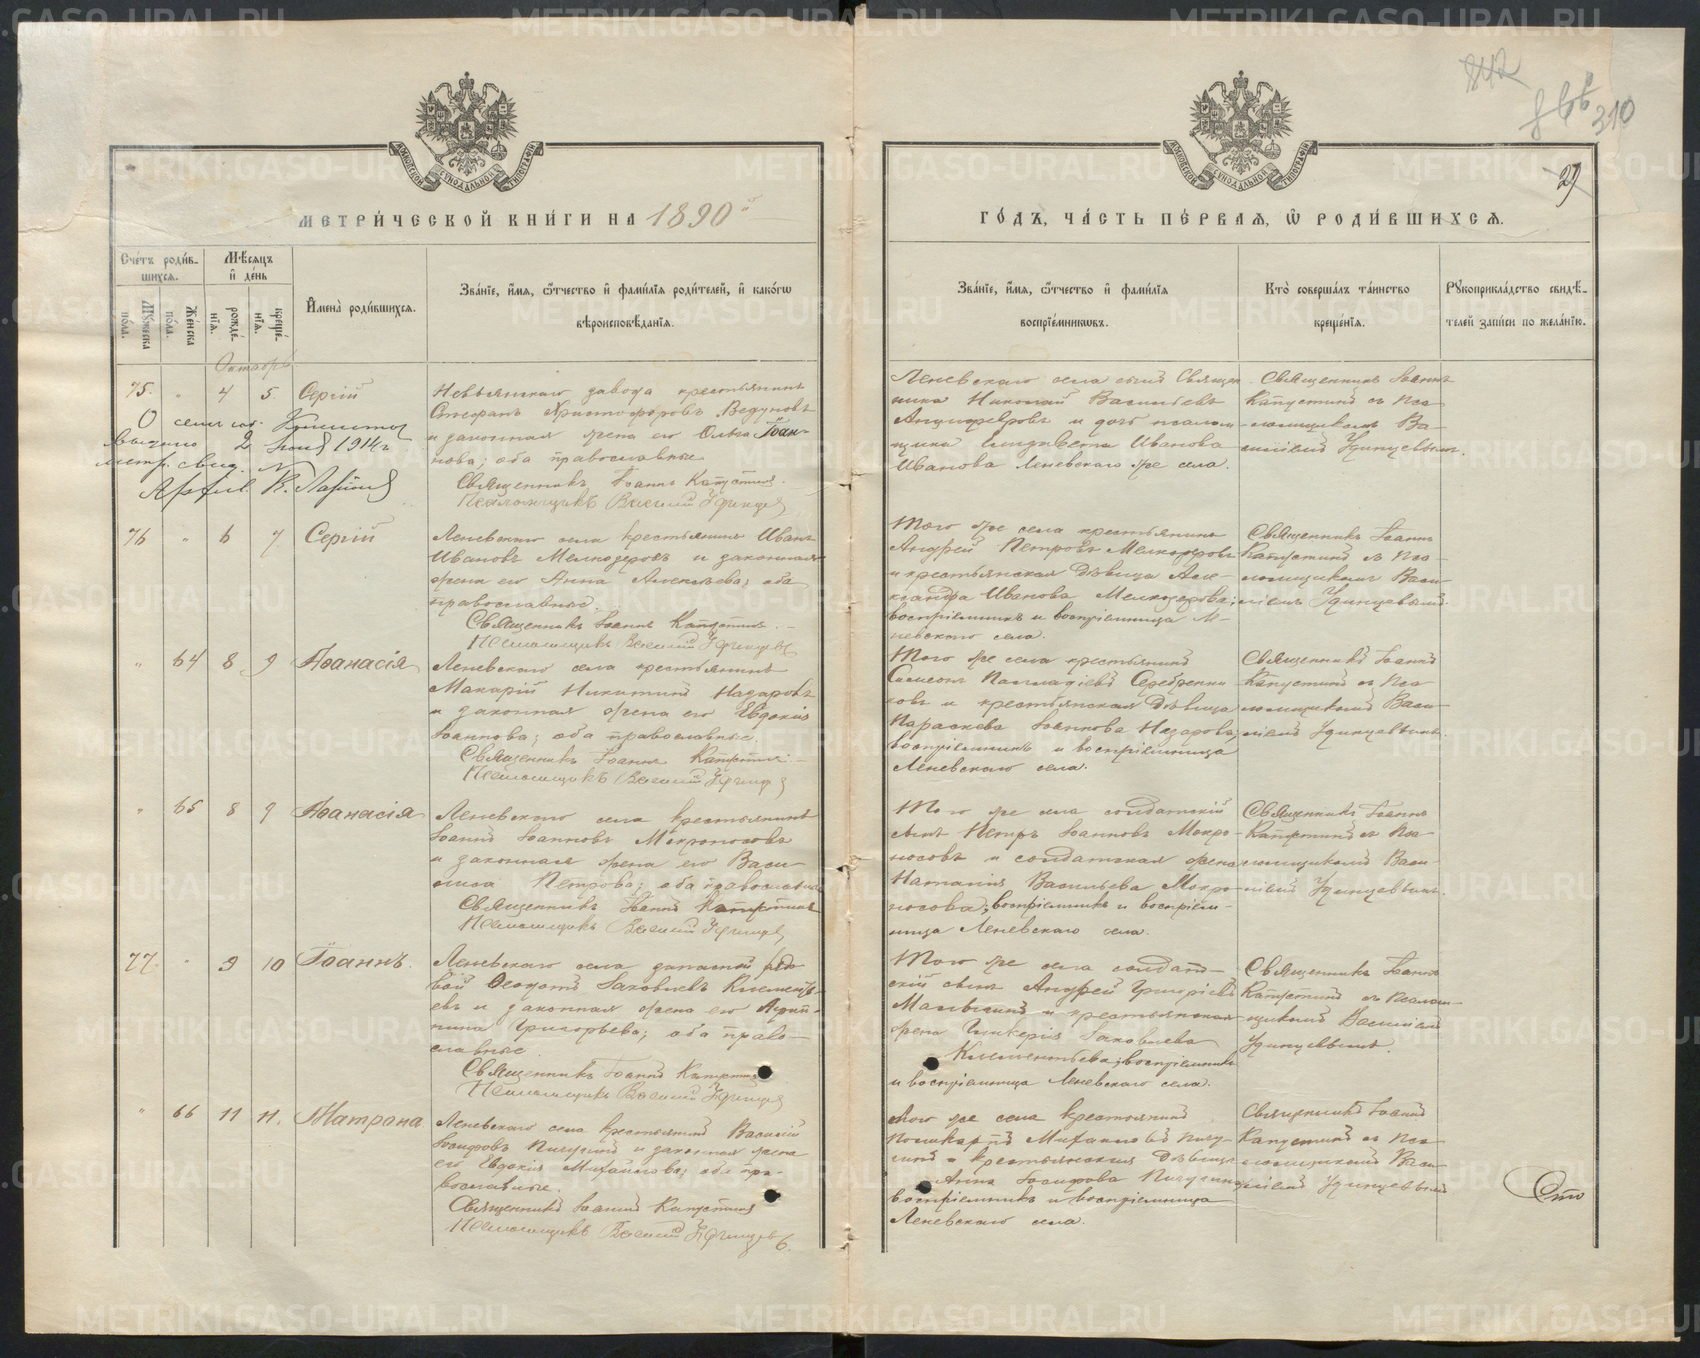 МЕТРИ́ЧЕСКОЙ КНИ́ГИ НА 1890й
ГО́ДЪ, ЧА́СТЬ ПЕ́РВАЯ, Ѿ РОДИ́ВШИХСЯ.
310
29
Сче́тъ роди́в-
шихся.
Мѣ́сяцъ
и҆ де́нь
Мꙋжеска по́ла.
Же́нска по́ла.
рожде́-
нїя.
креще́-
нїя.
И҆мена̀ роди́вшихся.
Зва́нїе, и҆́мя, ѻ҆́тчество и҆ фами́лїя роди́телей, и҆ како́гѡ
вѣроисповѣ́данїя.
Зва́нїе, и҆́мя, ѻ҆́тчество и҆ фами́лїя
воспрїе́мникѡвъ.
Кто̀ соверша́лъ та́инство
креще́нїя.
Рꙋкоприкла́дство свидѣ́-
телей за́писи по жела́нїю.
Октябрь
75. " 4 5. Сергій
Невьянскаго завода крестьянинъ
Стефанъ Христофоровъ Ведуновъ
и законная жена его Ольга Іоан-
нова; оба православные
Священникъ Іоаннъ Капустинъ.
Псаломщикъ Василій Удинцев
выдано 2 1914 г.
метр. свид. №
Леневскаго села сынъ Священ-
ника Николай Васильевъ
и дочь псалом-
щика Елизавета Иванова
Иванова Леневскаго же села.
Священникъ Іоаннъ
Капустинъ съ Пса-
ломщикомъ Ва-
силіемъ Удинцевымъ.
76 " 6 7. Сергій
Леневскаго села крестьянинъ Иванъ
Ивановъ Мелкозеровъ и законная
жена его Анна Алексѣева; оба
православные.
Священникъ Іоаннъ Капустинъ.
Псаломщикъ Василій Удинцев
Того же села крестьянинъ
Андрей Петровъ Мелкозеровъ
и крестьянская дѣвица Алек-
сандра Иванова Мелкозерова;
воспріемникъ и воспріемница Ле-
невскаго села.
Священникъ Іоаннъ
Капустинъ съ Пса-
ломщикомъ Васи-
ліемъ Удинцевымъ.
" 64 8 9 Аѳанасія
Леневскаго села крестьянинъ
Макарій Никитинъ Назаровъ
и законная жена его Евдокія
Іоаннова; оба православные.
Священникъ Іоаннъ Капустинъ
Псаломщикъ Василій Удинцев
Того же села крестьянинъ
Симеонъ Палладіевъ Серебренни-
ковъ и крестьянская дѣвица
Параскева Іоаннова Назарова;
воспріемникъ и воспріемница
Леневскаго села.
Священникъ Іоаннъ
Капустинъ съ Пса-
ломщикомъ Васи-
ліемъ Удинцевымъ.
" 65 8 9 Аѳанасія
Леневскаго села крестьянинъ
Іоаннъ Іоанновъ Мокроносовъ
и законная жена его Васи-
лиса Петрова; оба православные
Священникъ Іоаннъ Капустинъ
Псаломщикъ Василій Удинцев
Того же села солдатскій
сынъ Петръ Іоанновъ Мокро-
носовъ и солдатская жена
Наталія Васильева Мокро-
носова; воспріемникъ и воспріем-
ница Леневскаго села.
Священникъ Іоаннъ
Капустинъ съ Пса-
ломщикомъ Васи-
ліемъ Удинцевымъ.
77. " 9 10 Іоаннъ.
Леневскаго села запасной рядо-
вой Ѳеодотъ Іаковлевъ Клементь-
евъ и законная жена его Агрип-
пина Григорьева; оба право-
славные.
Священникъ Іоаннъ Капустинъ
Псаломщикъ Василій Удинцев
Того же села солдат-
скій сынъ Андрей Григорьевъ
и крестьянская
жена Гликерія Іаковлева
Клементьева; воспріемникъ
и воспріемница Леневскаго села.
Священникъ Іоаннъ
Капустинъ съ Псалом-
щикомъ Василіемъ
Удинцевымъ.
" 66 11 11. Матрона
Леневскаго села крестьянинъ Василій
Іосифовъ Пичугинъ и законная жена
его Евдокія Михайлова; оба пра-
вославные.
Священникъ Іоаннъ Капустинъ
Псаломщикъ Василій Удинцев
6.
Того же села крестьянинъ
Поликарпъ Михайловъ Пичу-
гинъ и крестьянская дѣвица
Анна Іосифова Пичугина;
воспріемникъ и воспріемница
Леневскаго села.
Священникъ Іоаннъ
Капустинъ съ Пса-
ломщикомъ Васи-
ліемъ Удинцевымъ
Сто